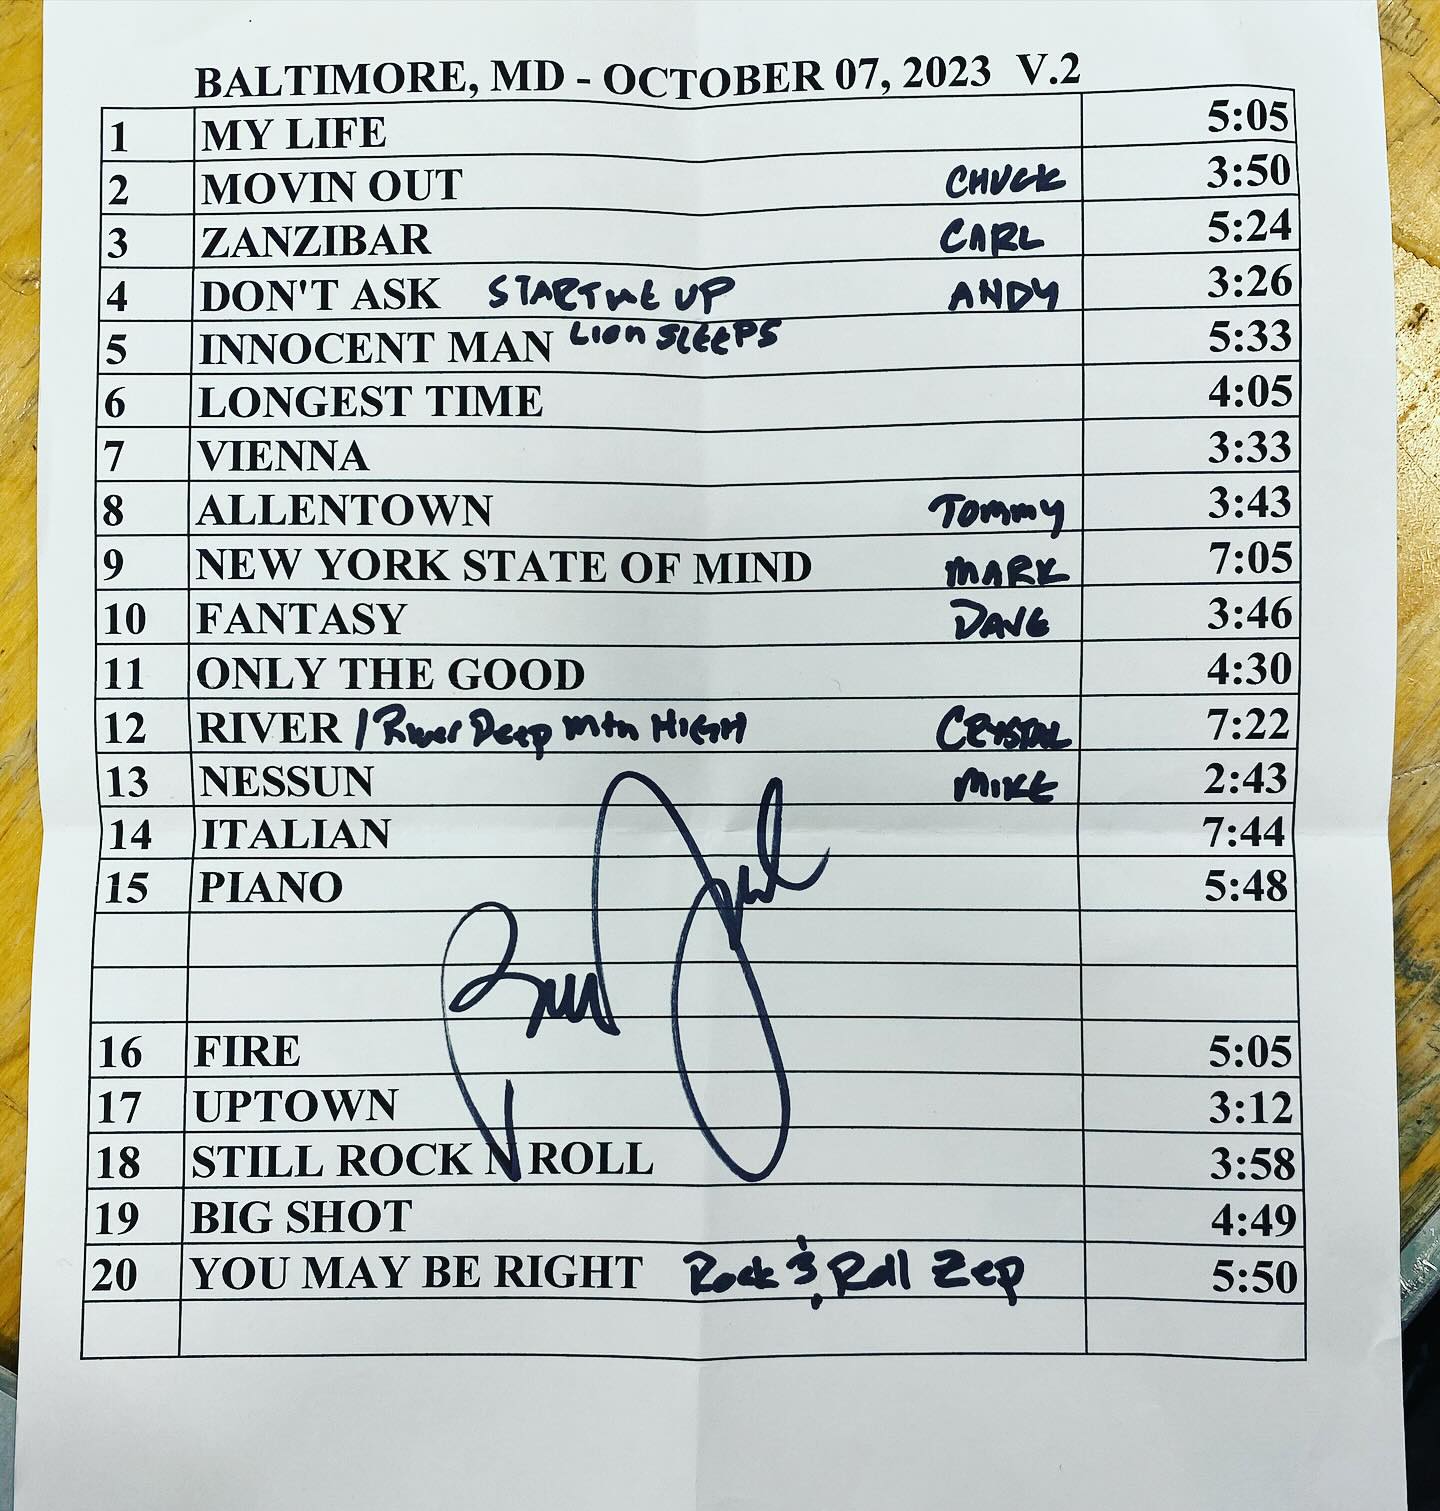 BALTIMORE, MD - OCTOBER 07, 2023 V.2
1 MY LIFE 5:05
2 MOVIN OUT CHUCK 3:50
3 ZANZIBAR CARL 5:24
4 DON'T ASK START ME UP ANDY 3:26
5 INNOCENT MAN LION SLEEPS 5:33
6 LONGEST TIME 4:05
7 VIENNA 3:33
8 ALLENTOWN TOMMY 3:43
9 NEW YORK STATE OF MIND MARK 7:05
10 FANTASY DAVE 3:46
11 ONLY THE GOOD 4:30
12 RIVER / River Deep Mtn HIGH CRYSTAL 7:22
13 NESSUN MIKE 2:43
14 ITALIAN 7:44
15 PIANO 5:48
Bill Joel
16 FIRE 5:05
17 UPTOWN 3:12
18 STILL ROCK N ROLL 3:58
19 BIG SHOT 4:49
20 YOU MAY BE RIGHT Rock & Roll Zep 5:50